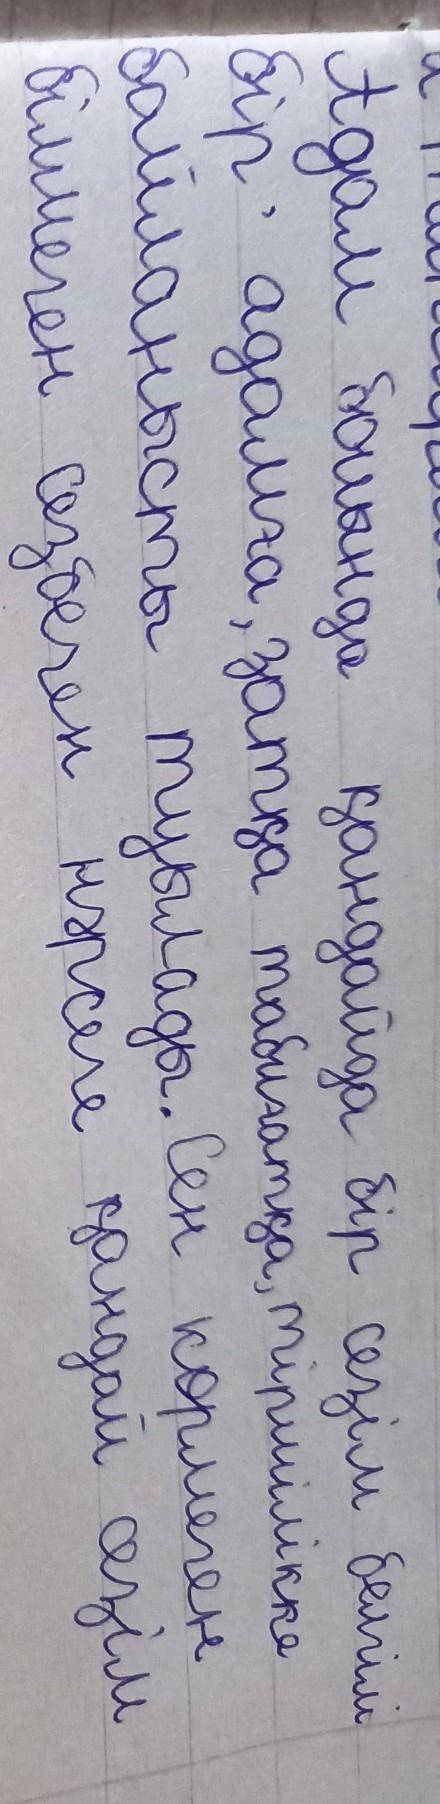 Адам бойында қандайда бір сезім белгілі
бір адамға, затқа табиғатқа, тіршілікке
байланысты туылады. Сен көрмеген
білмеген сезбеген нәрсеге қандай сезім